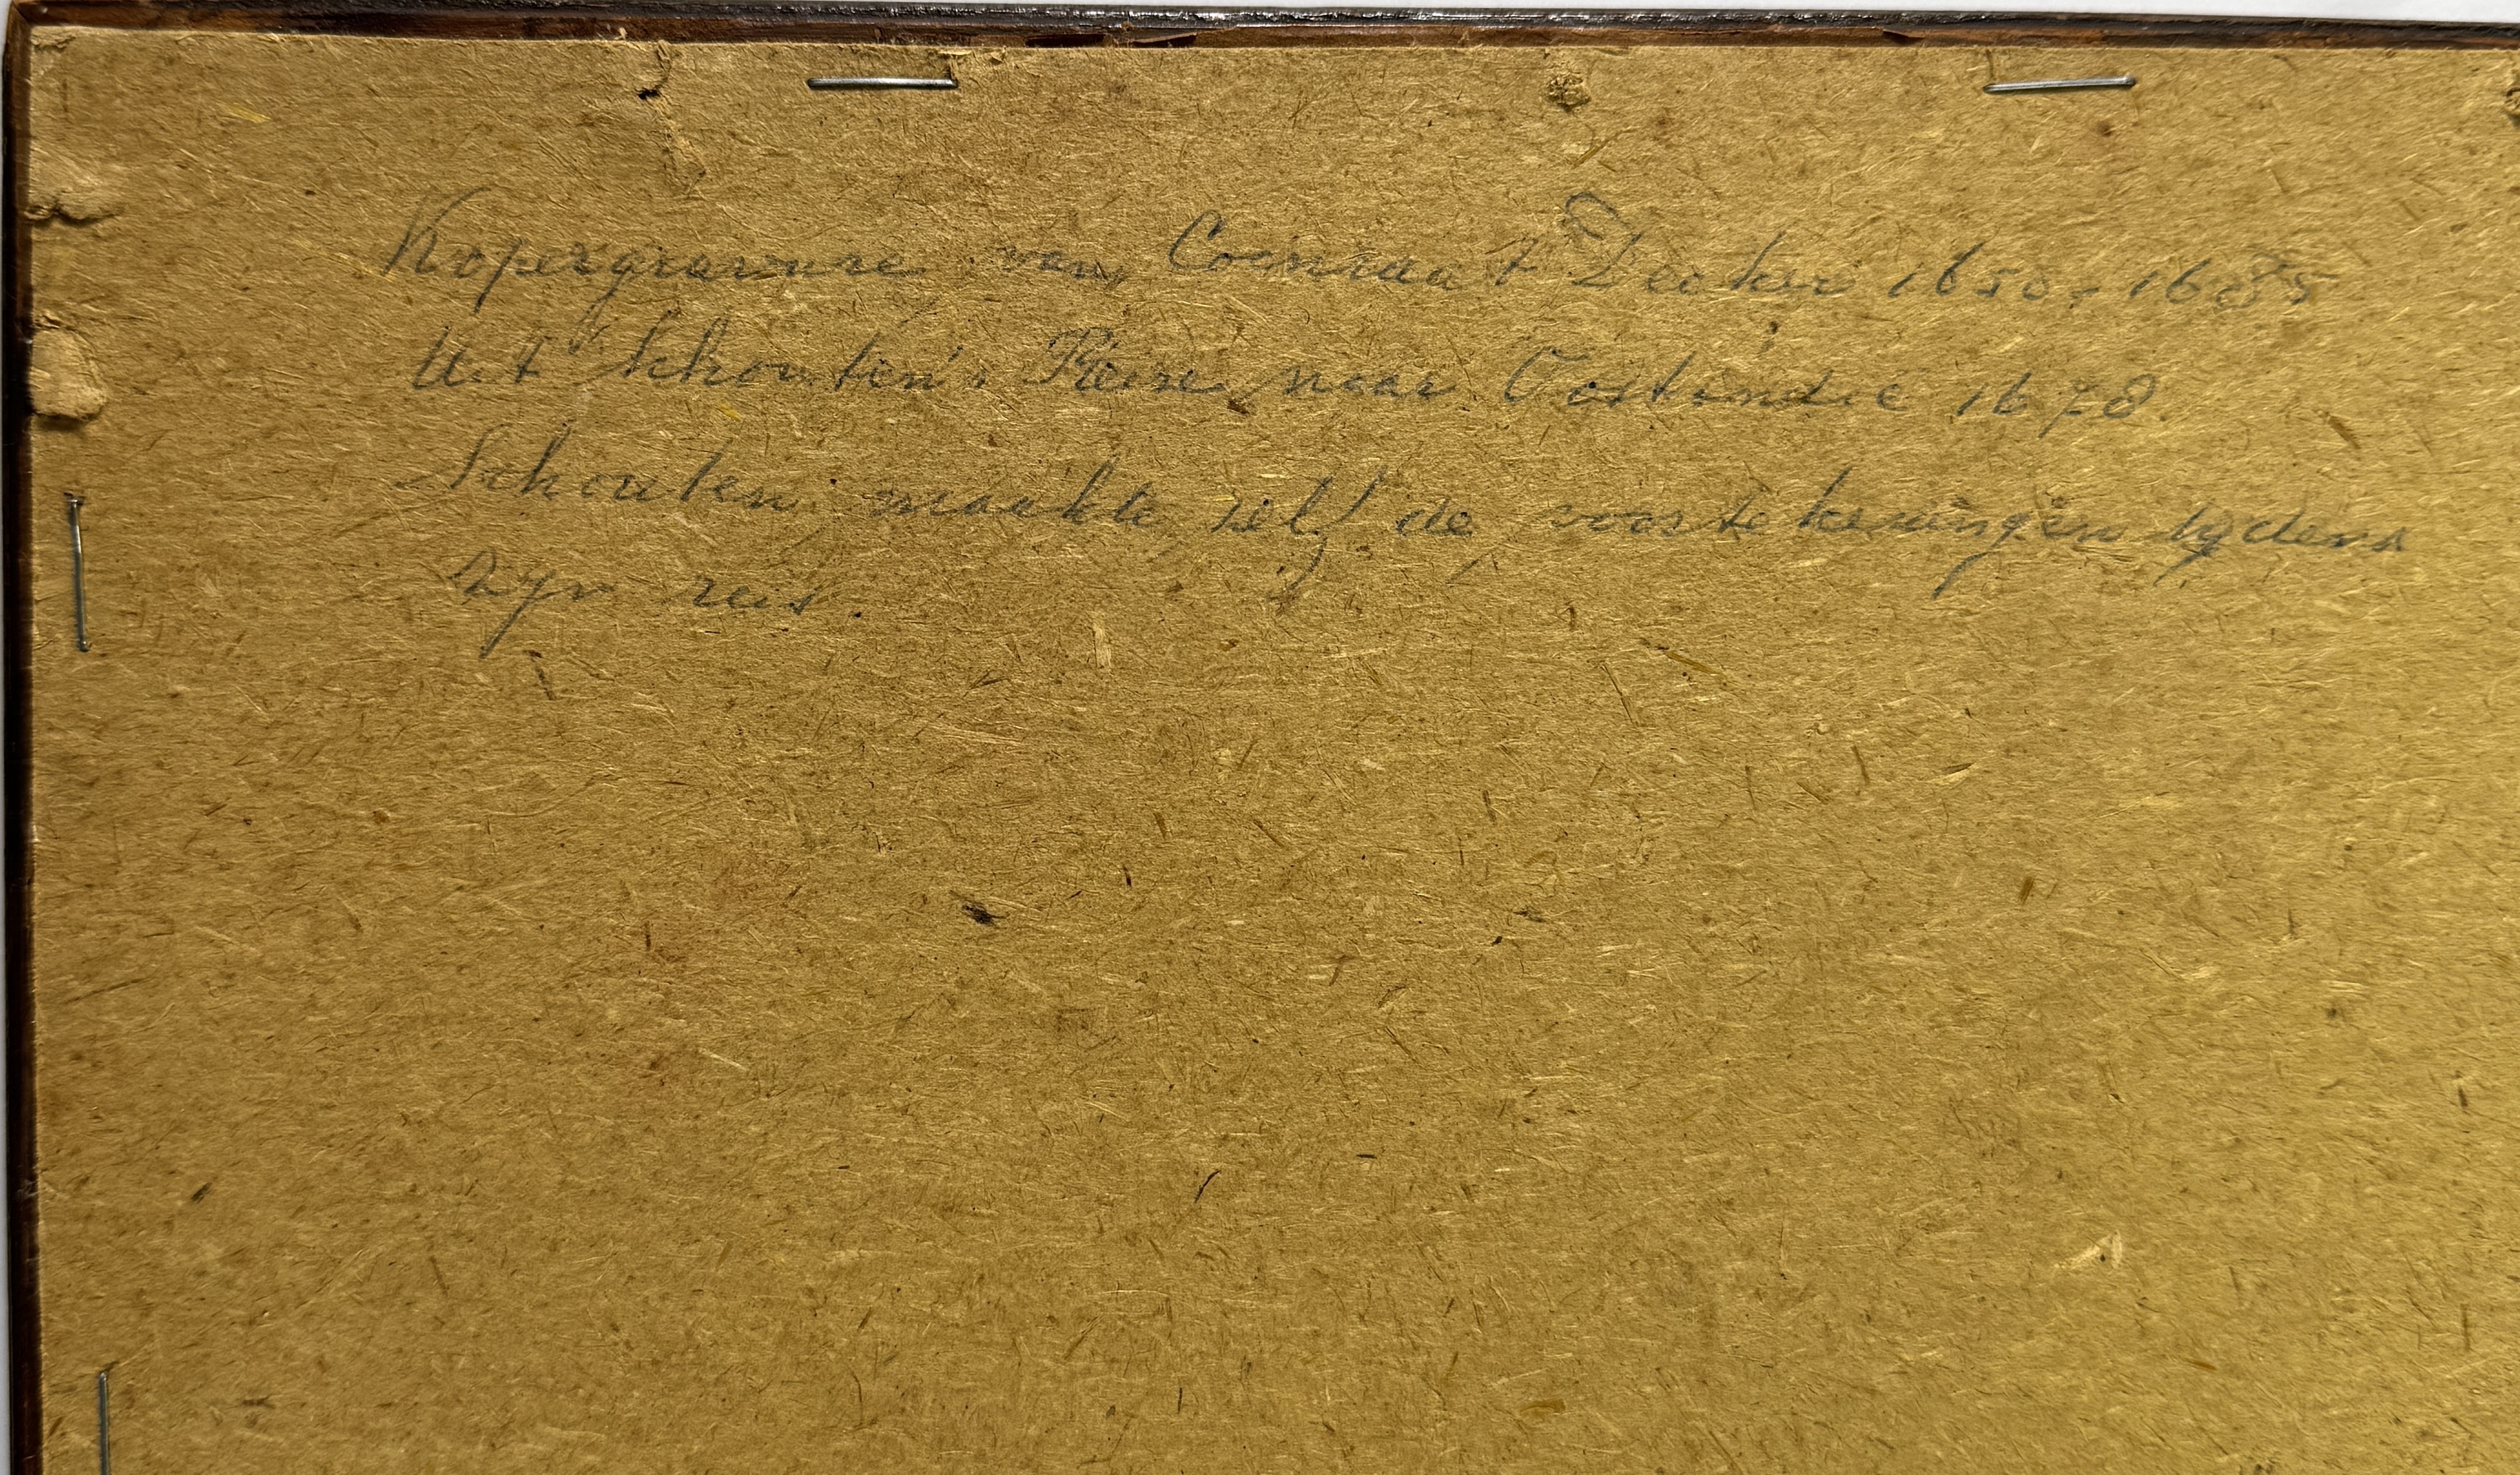 Kopergravure van Coenraat Decker 1650-1685
Uit Schouten's Reise naar Oostindie 1678.
Schouten maakte zelf de voortekeningen tydens
zyn reis.